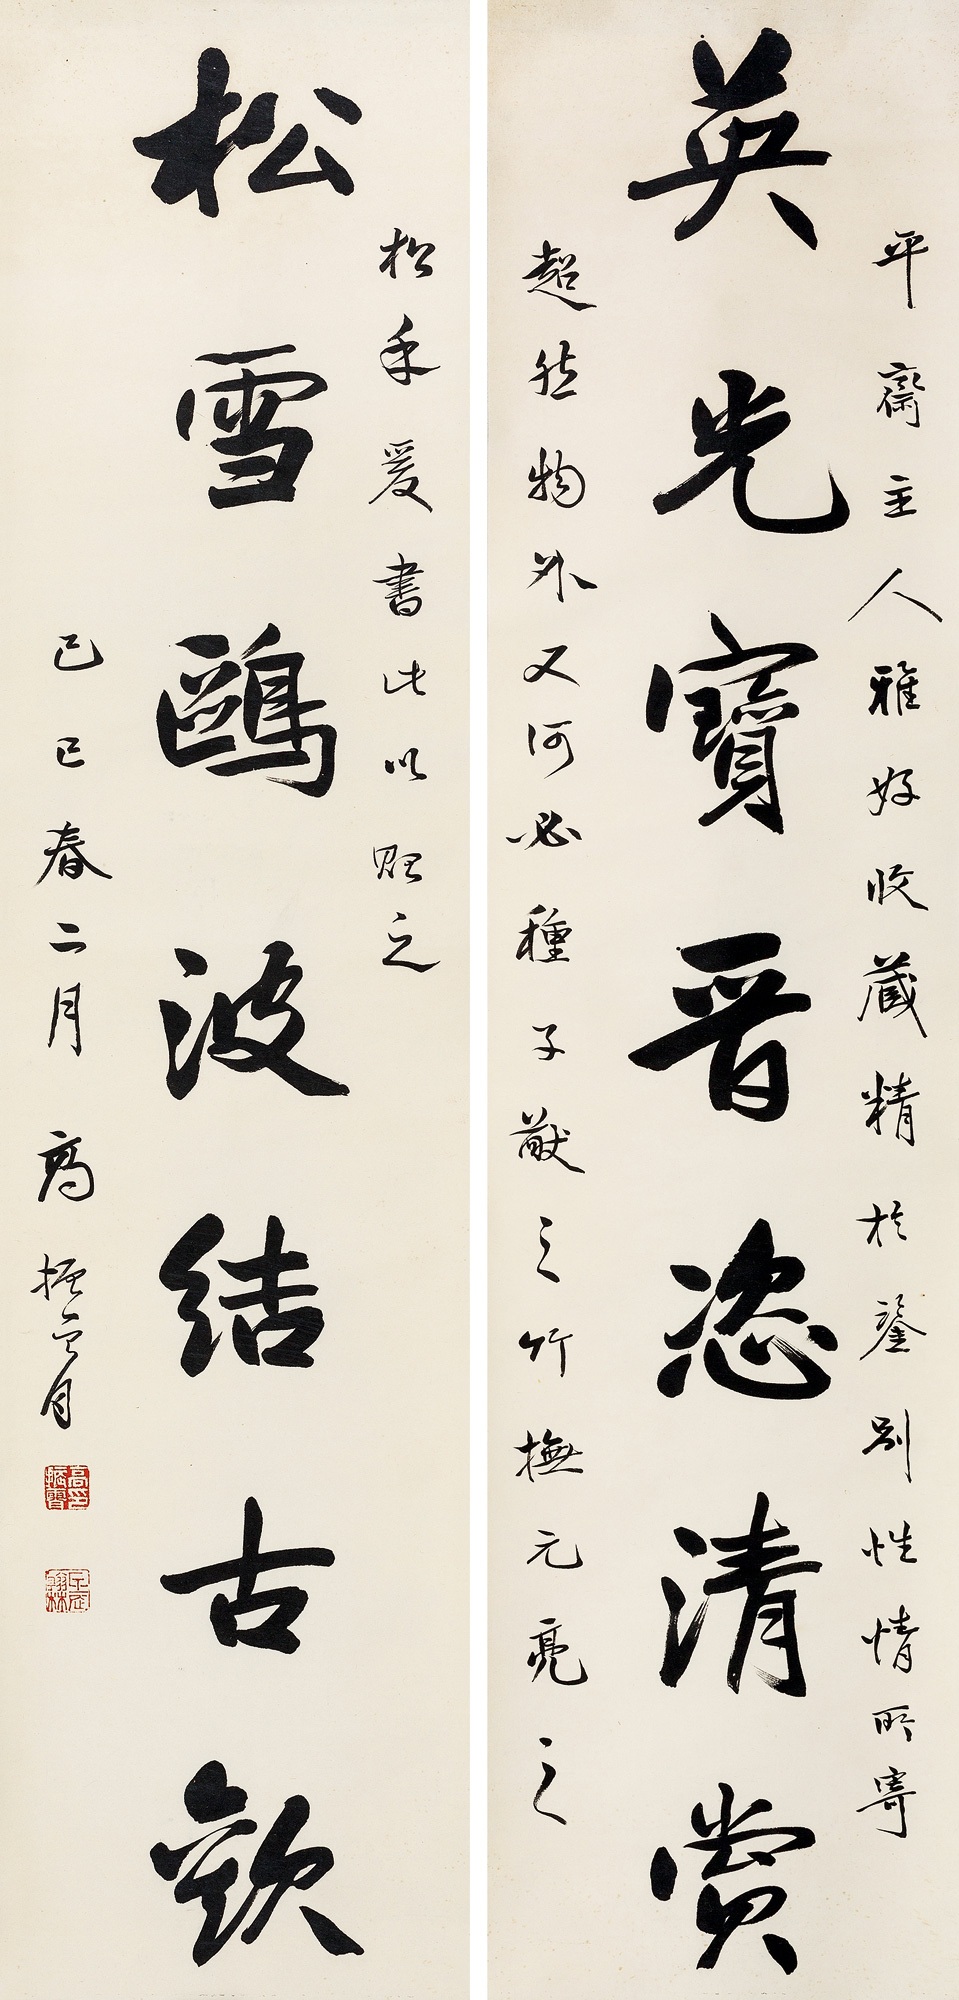 平齋主人雅好收藏精於鑒別性情所寄
英光寶晉恣清賞
超然物外又何必種子猷之竹撫元亮之
松乎爰書此以贻之
松雪鷗波結古歡
己巳春二月 高振霄
高振霄印